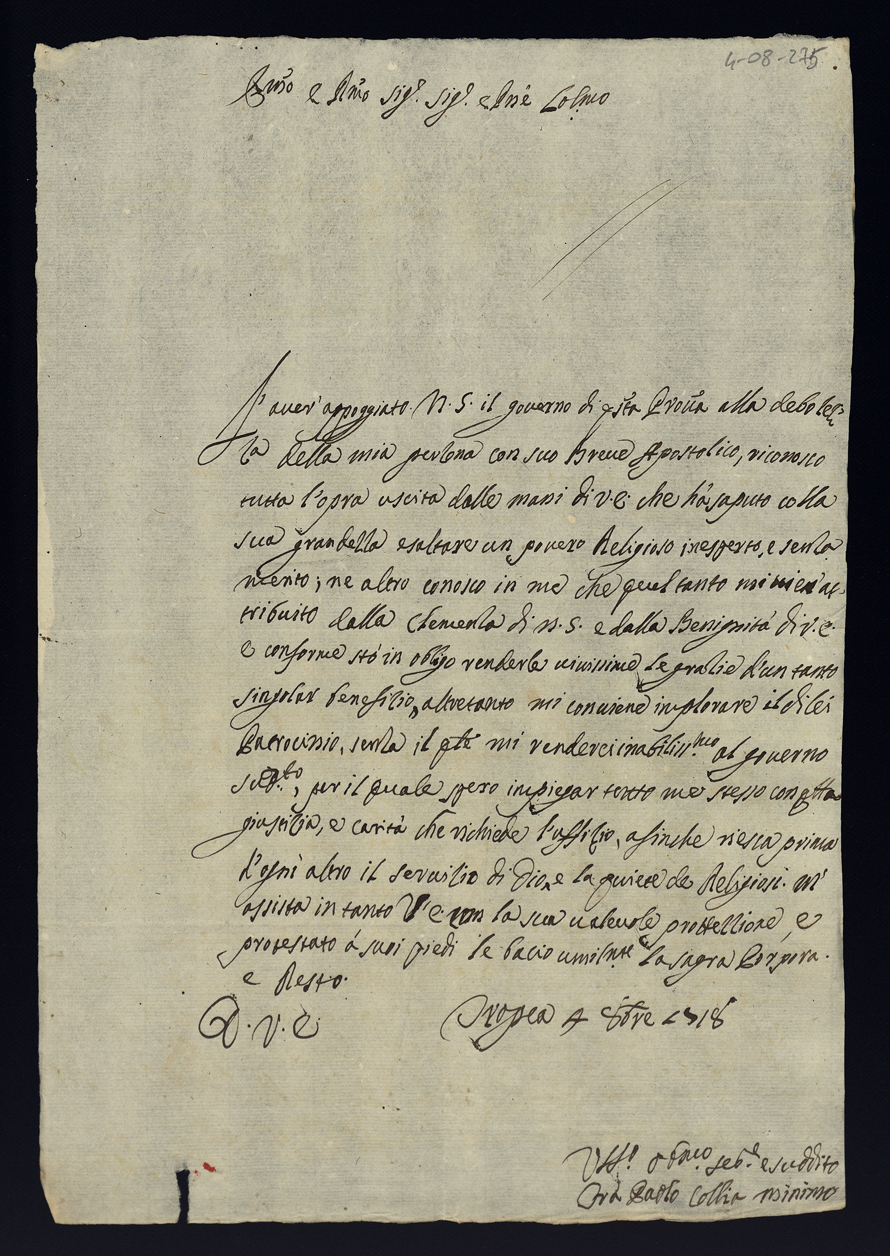 4-08-275
Em̃o e Rm̃o Sig.r Sig.r e Prñe Colmo
L'aver' appoggiato N. S. il governo di q̃sta Prov̄a alla debolez
za della mia persona con suo Breve Apostolico, riconosco
tutta l'opra uscita dalle mani di V. E. che hà saputo colla
sua grandezza esaltare un povero Religioso inesperto, e senza
merito; ne altro conosco in me che quel tanto mi vien' at-
tribuito dalla Clemenza di N. S. e dalla Benignità di V. E.
e conforme stò in obligo renderle vivissime le grazie d'un tanto
singolar benefizio, altretanto mi conviene implorare il di lei
Patrocinio, senza il q̃le mi renderei inabiliss.mo al governo
sud.to, per il quale spero impiegar tutto me stesso con q̃lla
giustizia, e carità che richiede l'uffizio, afinche riesca prima
d'ogni altro il servizio di Dio, e la quiete de Religiosi. M'
assista in tanto V. E. con la sua valevole prottezzione, e
protestato á suoi piedi le bacio umilm̃te la sagra Porpora.
e Resto.
D. V. E. Tropea 4 8bre 1718
Um̃o obmo. se.r e suddito
Frà Paolo Collia minimo